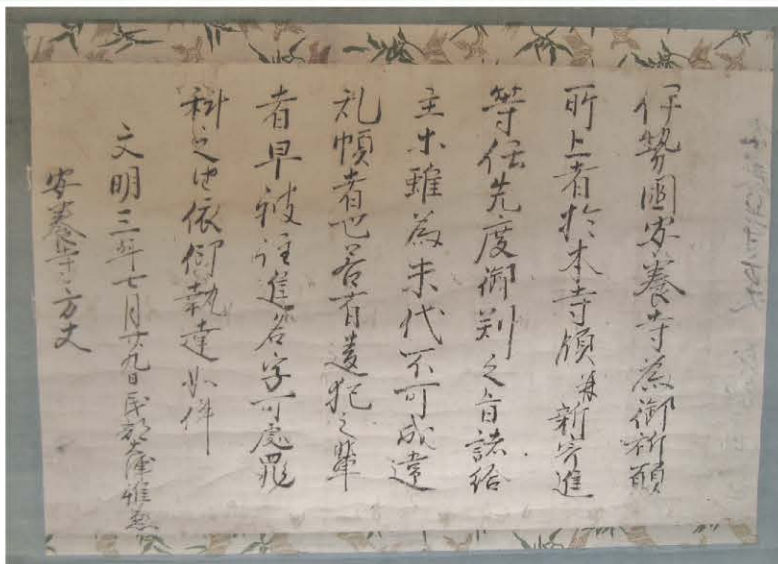 伊勢國安養寺為御祈願
所上者於本寺領并新寄進
等任先度御判之旨諸給
主等雖為末代不可成違
乱煩者也若有違犯之輩
者早被注進名字可處罪
科之由依仰執達如件
文明三年七月廿九日民部大輔雅
安養寺方丈